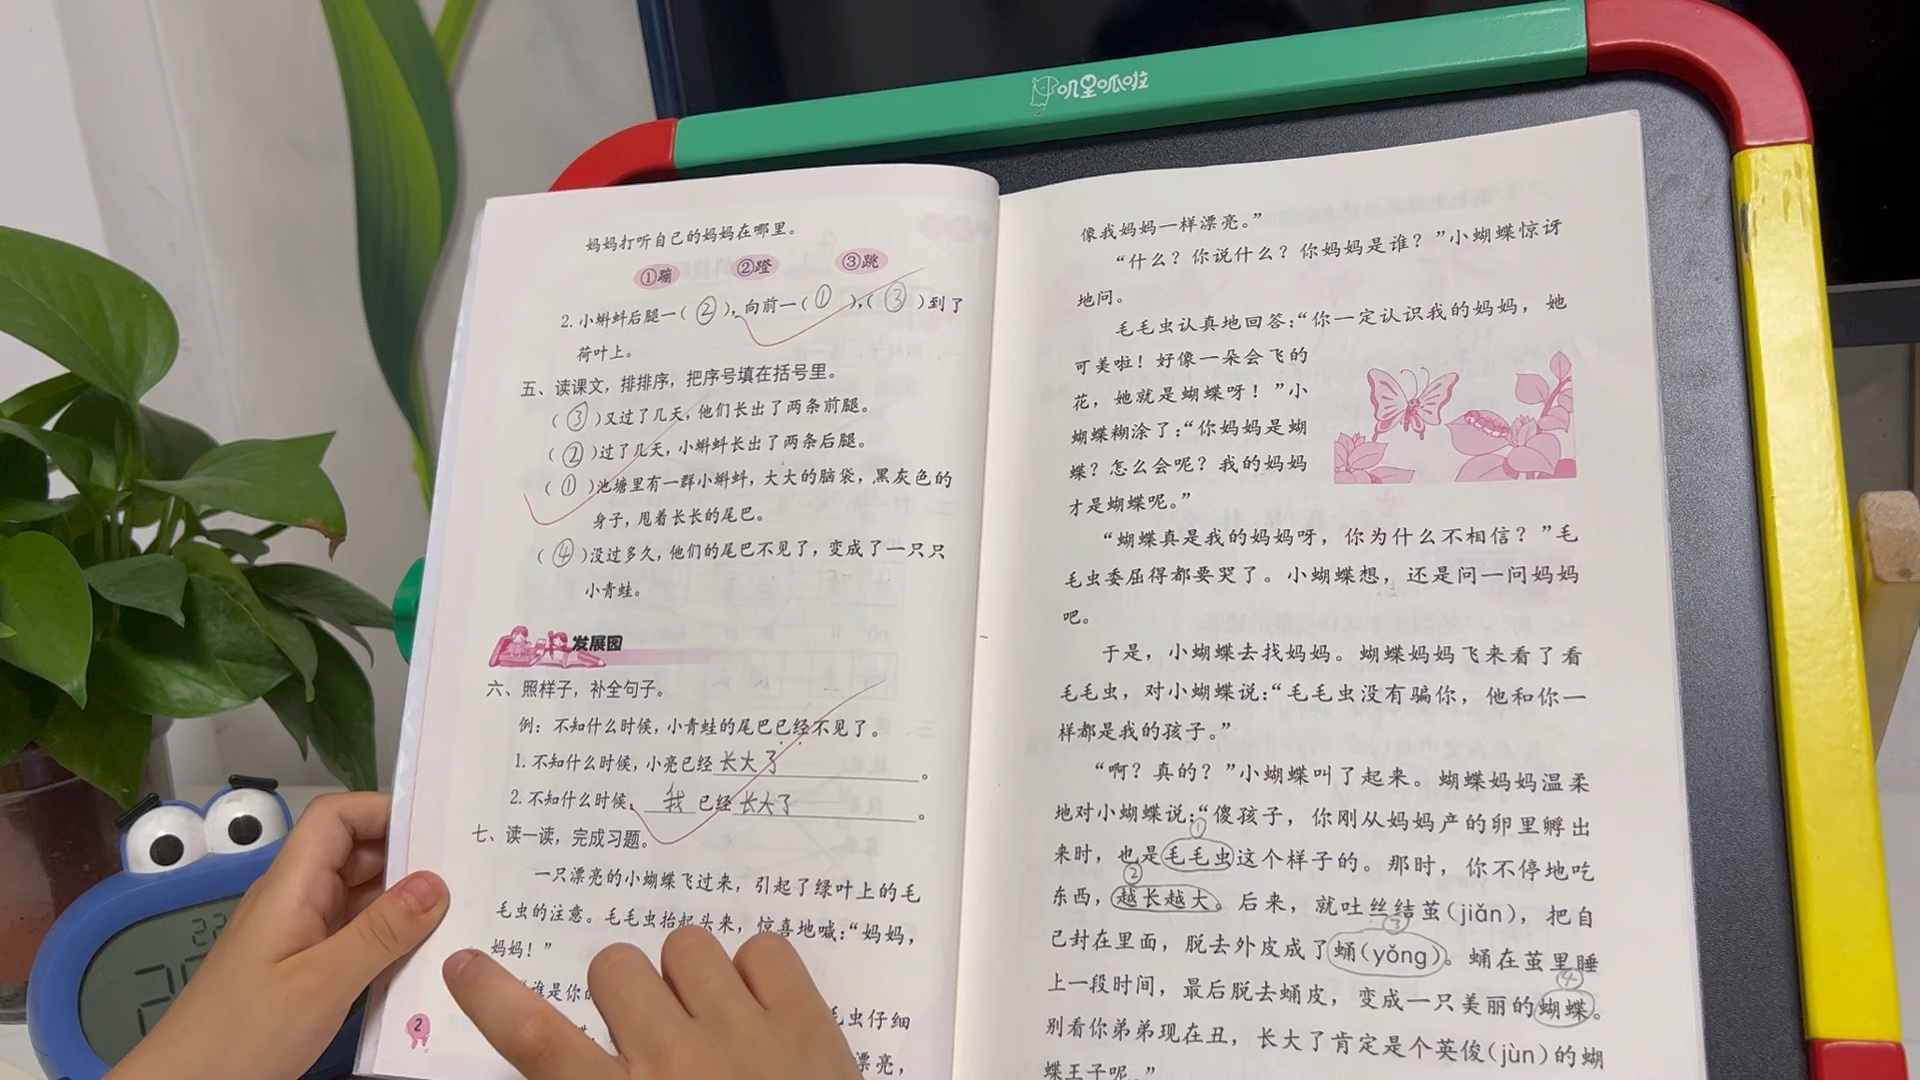 叽里呱啦
妈妈打听自己的妈妈在哪里。
①蹦 ②蹬 ③跳
2. 小蝌蚪后腿一( ② ),向前一( ① ),( ③ )到了
荷叶上。
五、读课文，排排序，把序号填在括号里。
( ③ )又过了几天，他们长出了两条前腿。
( ② )过了几天，小蝌蚪长出了两条后腿。
( ① )池塘里有一群小蝌蚪，大大的脑袋，黑灰色的
身子，甩着长长的尾巴。
( ④ )没过多久，他们的尾巴不见了，变成了一只只
小青蛙。
发展园
六、照样子，补全句子。
例：不知什么时候，小青蛙的尾巴已经不见了。
1. 不知什么时候，小亮已经 长大了 。
2. 不知什么时候， 我 已经 长大了 。
七、读一读，完成习题。
一只漂亮的小蝴蝶飞过来，引起了绿叶上的毛
毛虫的注意。毛毛虫抬起头来，惊喜地喊：“妈妈，
妈妈！”
“谁是你的
毛虫仔细
漂亮，
2
像我妈妈一样漂亮。”
“什么？你说什么？你妈妈是谁？”小蝴蝶惊讶
地问。
毛毛虫认真地回答：“你一定认识我的妈妈，她
可美啦！好像一朵会飞的
花，她就是蝴蝶呀！”小
蝴蝶糊涂了：“你妈妈是蝴
蝶？怎么会呢？我的妈妈
才是蝴蝶呢。”
“蝴蝶真是我的妈妈呀，你为什么不相信？”毛
毛虫委屈得都要哭了。小蝴蝶想，还是问一问妈妈
吧。
于是，小蝴蝶去找妈妈。蝴蝶妈妈飞来看了看
毛毛虫，对小蝴蝶说：“毛毛虫没有骗你，他和你一
样都是我的孩子。”
“啊？真的？”小蝴蝶叫了起来。蝴蝶妈妈温柔
地对小蝴蝶说：“傻孩子，你刚从妈妈产的卵里孵出
①
来时，也是毛毛虫这个样子的。那时，你不停地吃
②
东西，越长越大。后来，就吐丝结茧(jiǎn)，把自
③
己封在里面，脱去外皮成了蛹(yǒng)。蛹在茧里睡
④
上一段时间，最后脱去蛹皮，变成一只美丽的蝴蝶。
别看你弟弟现在丑，长大了肯定是个英俊(jùn)的蝴
蝶王子呢。”